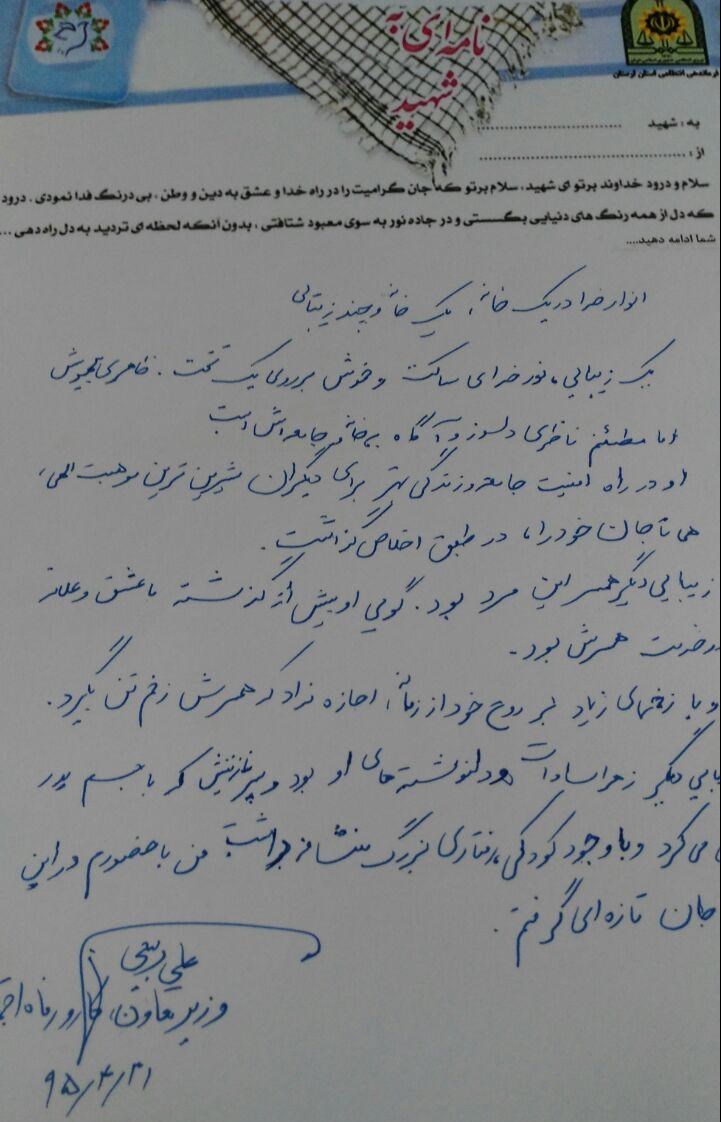 نامه ای به
شهید
فرماندهی انتظامی استان لرستان
به : شهید ........................................
از : ........................................
سلام و درود خداوند برتو ای شهید، سلام برتو که جان گرامیت را در راه خدا و عشق به دین و وطن، بی درنگ فدا نمودی . درود
که دل از همه رنگ های دنیایی بگسستی و در جاده نور به سوی معبود شتافتی، بدون آنکه لحظه ای تردید به دل راه دهی ...
شما ادامه دهید....
انوار خدا در یک خانه، یک خانه و چند زیبایی
یک زیبایی، نور خدای ساکت و خموش بر روی یک تخت . ظاهری بیهوش
اما مطمئنم ناظری دلسوز و آگاه به خانه و جامعه اش است
او در راه امنیت جامعه و زندگی بهتر برای دیگران شیرین ترین موهبت الهی،
همانا جان خود را، در طبق اخلاص گذاشت .
زیبایی دیگر همسر این مرد بود . گویی او بیش از گذشته با عشق و علاقه
در خدمت همسرش بود .
و با زخمهای زیاد بر روح خود از زمانه، اجازه نداد که همسرش زخم تن بگیرد .
دیگر زهرا سادات و دلنوشته های او بود و پسر نازنینش که با جسم پدر
می کرد و با وجود کودکی، رفتاری بزرگ منشانه داشت من با حضورم در این
جان تازه ای گرفتم .
علی ربیعی
وزیر تعاون، کار و رفاه
۹۵/۴/۳۱